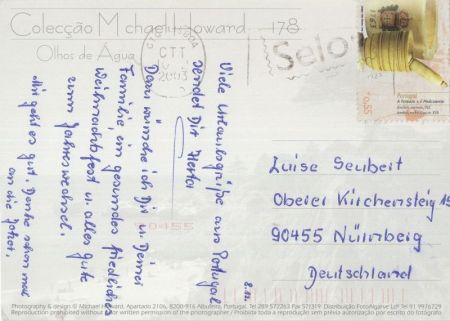 Colecção Michael Howard 178
Olhos de Água
CTT
2003
Selo
Portugal
€0,55
Viele Urlaubsgrüße aus Portugal
sendet Dir Hertor
Dazu wünsche ich Dir u. Deiner
Familie, ein gesundes friedliches
Weihnachtsfest u. alles gute
zum Jahreswechsel.
Mir geht es gut. Danke schon mal
an die Peter.
8.12.
Luise Seubert
Oberer Kirchensteig 15
90455 Nürnberg
Deutschland
90455
Photography & design © Michael Howard, Apartado 2106, 8200-916 Albufeira, Portugal. Tel 289 572263 Fax 571319 Distribuição FotoAlgarve Ldª Tel 91 9976729
Reproduction prohibited without prior written permission of the photographer / Proibida toda a reprodução sem prévia autorização escrita do fotógrafo